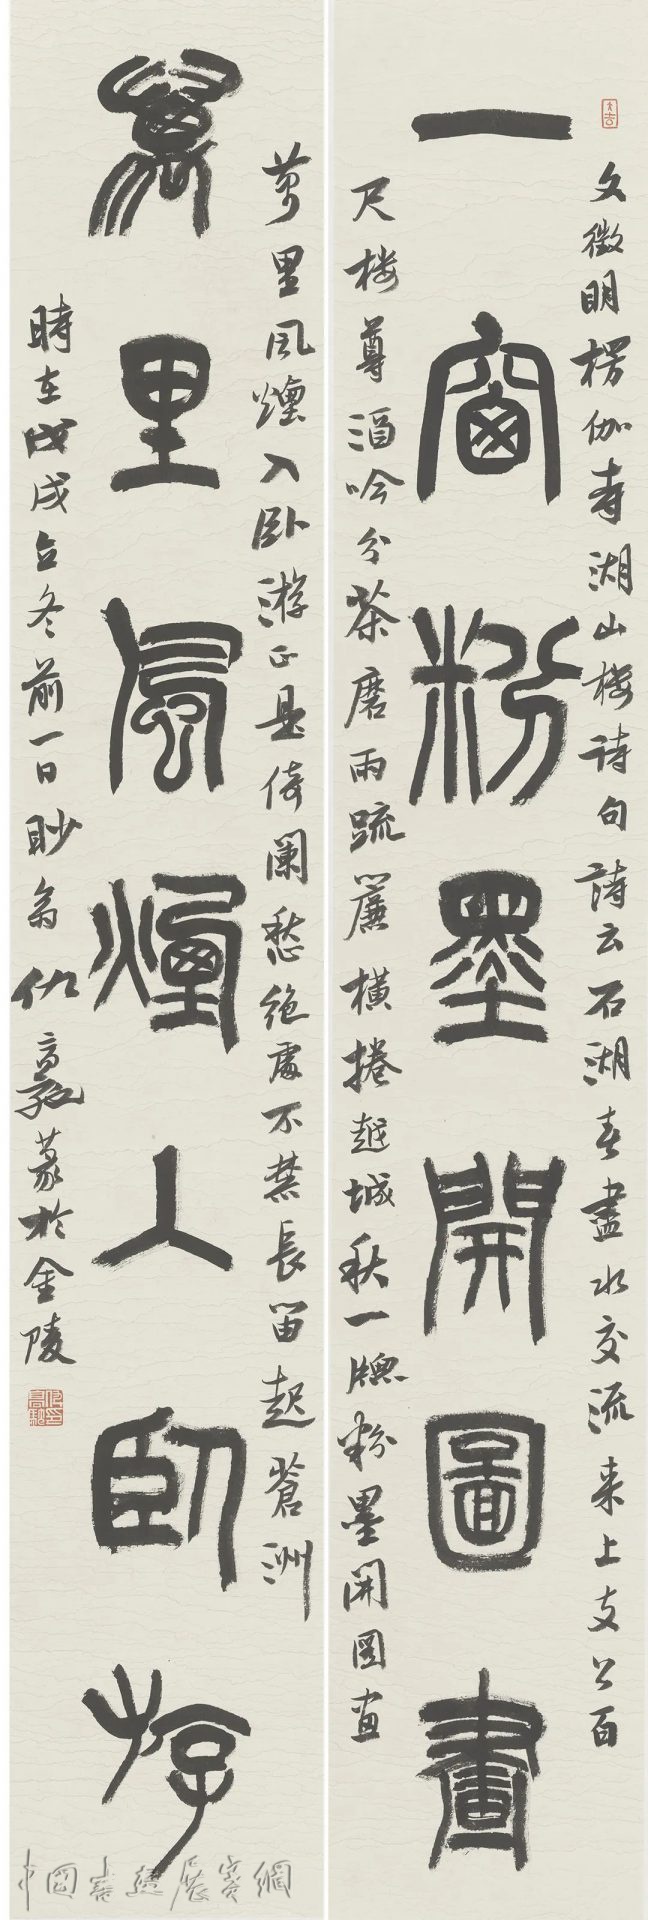 一窗粉墨開圖畫
文徵明楞伽寺湖山楼诗句詩云石湖春盡水交流来上支公百
尺楼尊酒吟分茶磨雨疏簾橫捲越城秋一牕粉墨開图画
萬里風煙入卧游
萬里風煙入卧游正是倚阑愁絶處不禁長笛起蒼洲
時在戊戌立冬前一日眇翁仇高驰篆於金陵
中國書畫展賽網